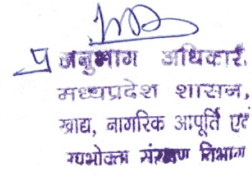 अनुभाग अधिकारी
मध्यप्रदेश शासन,
खाद्य, नागरिक आपूर्ति एवं
उपभोक्ता संरक्षण विभाग